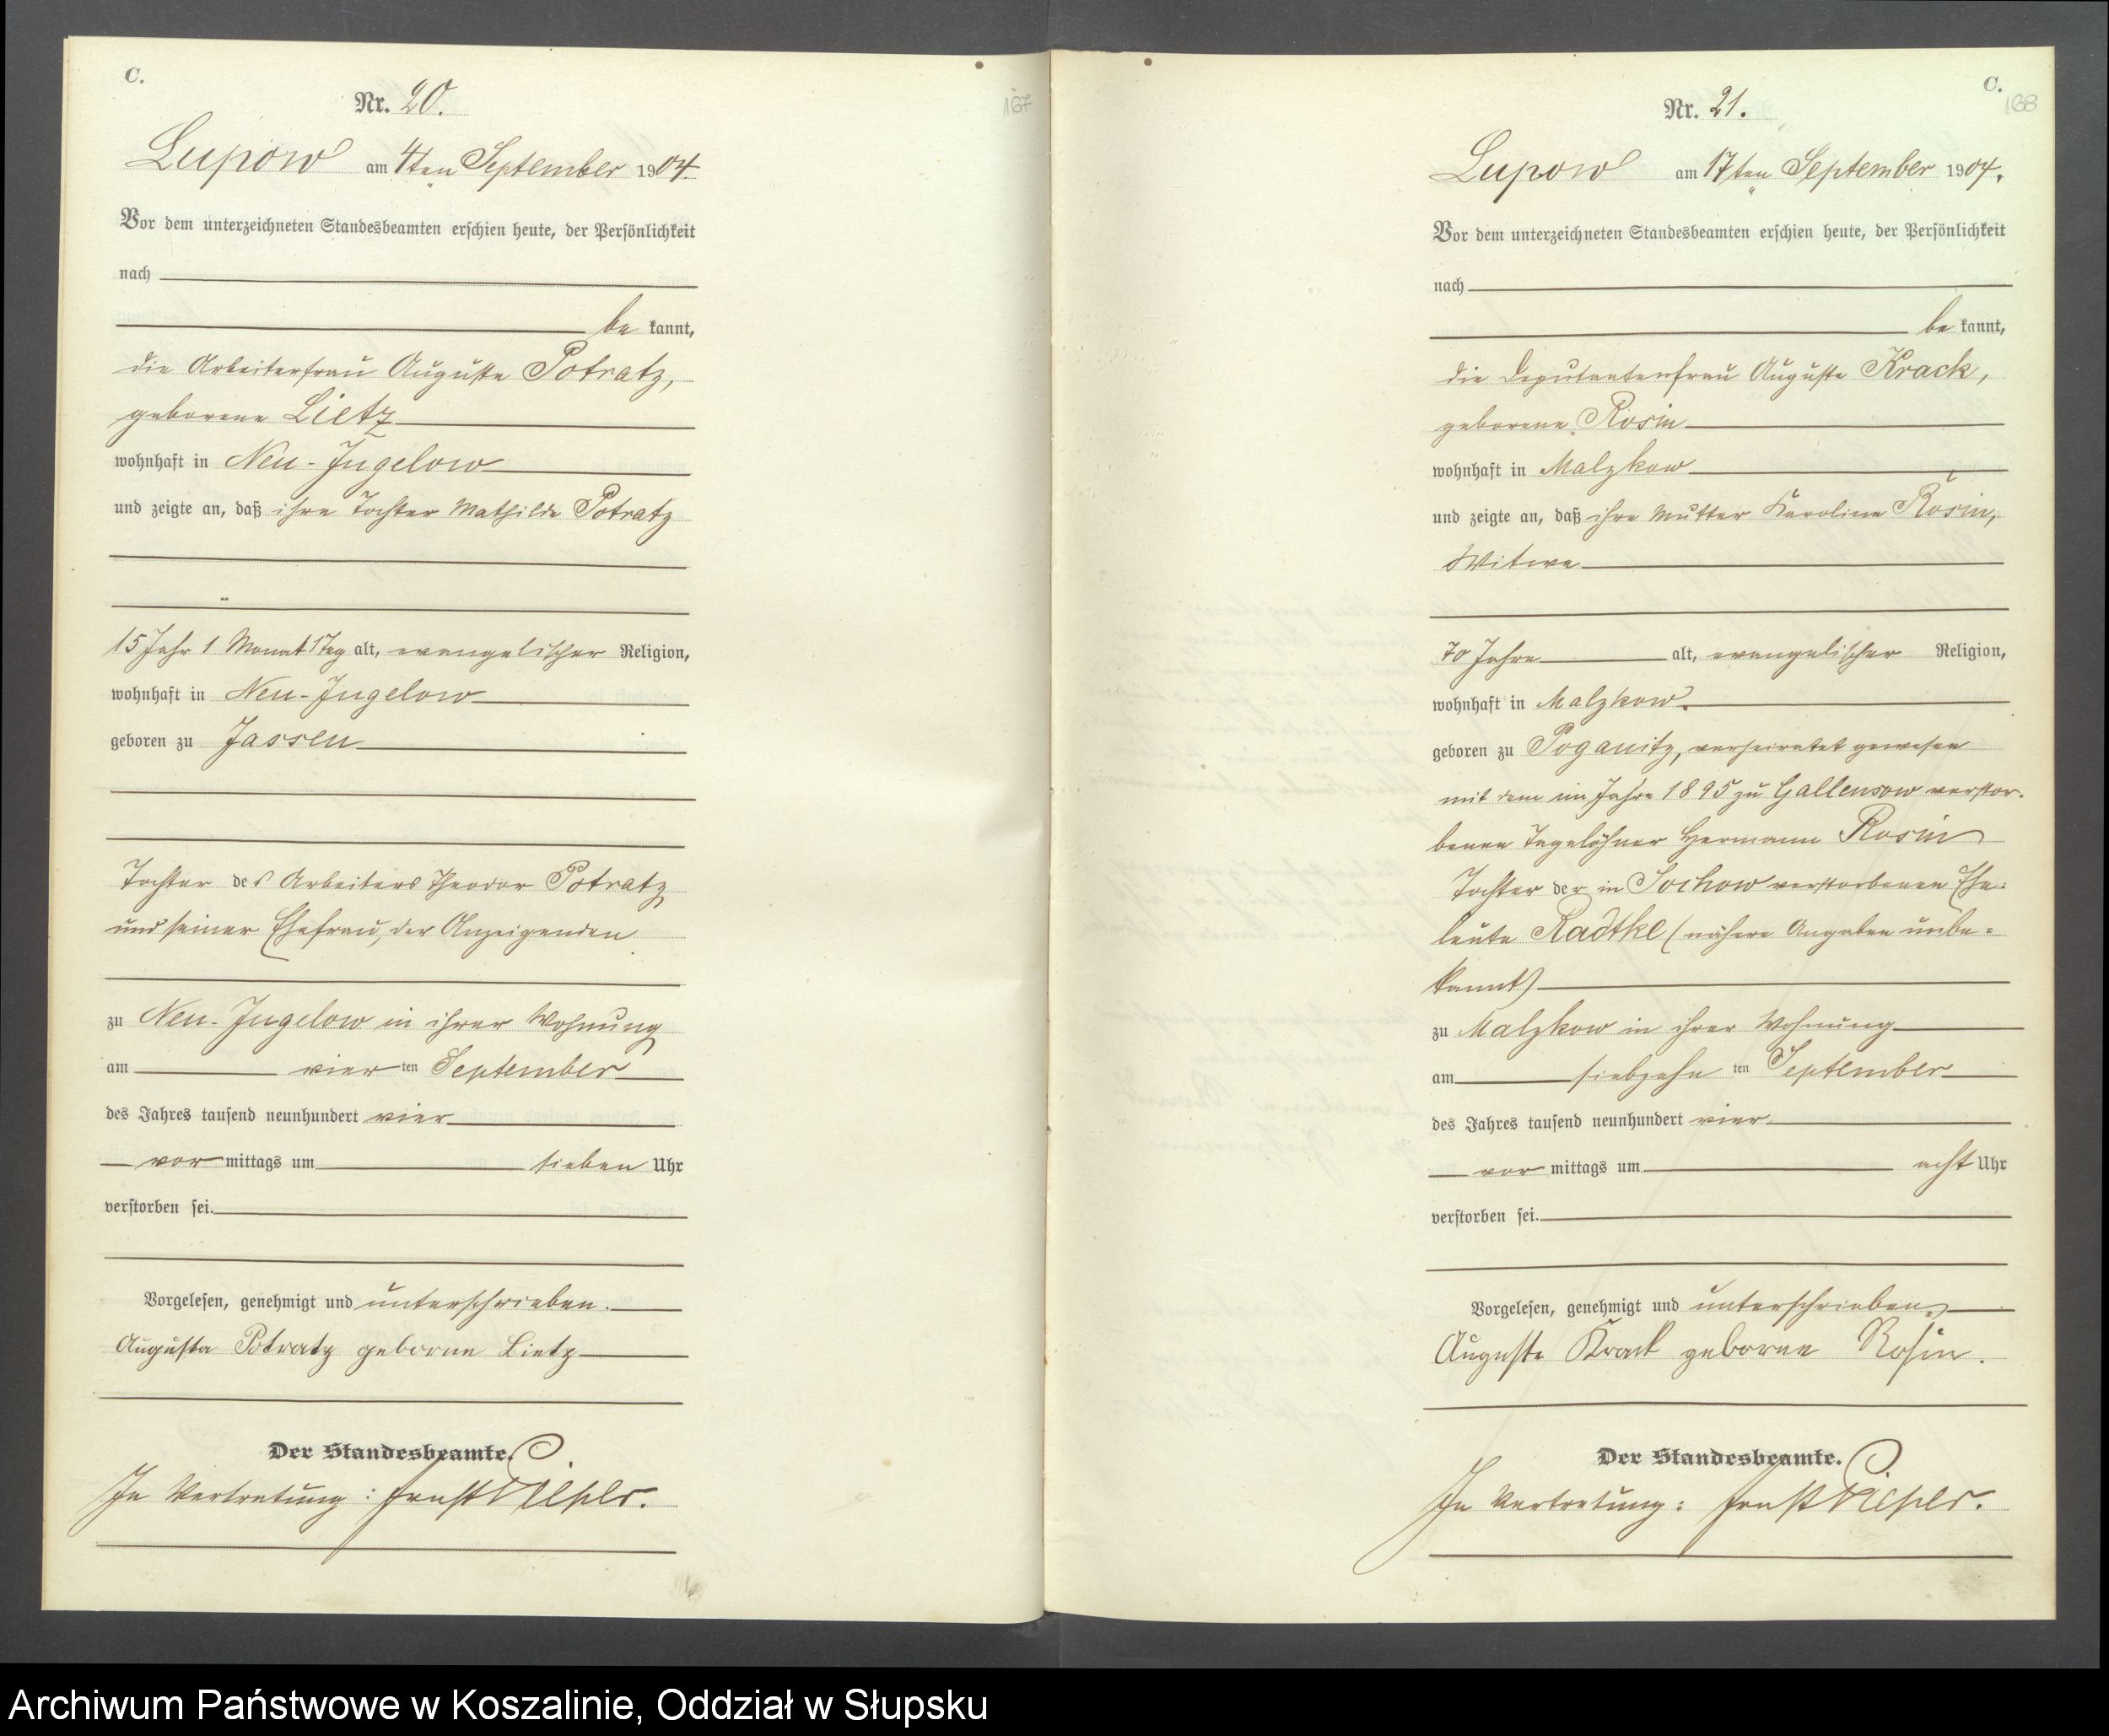 C.
167
Nr. 20.
Lupow am 4ten September 1904.
Vor dem unterzeichneten Standesbeamten erschien heute, der Persönlichkeit
nach
be kannt,
die Arbeiterfrau Auguste Potratz,
geborene Lietz
wohnhaft in Neu-Jugelow
und zeigte an, daß ihre Tochter Mathilde Potratz
15 Jahr 1 Monat 1 Tag alt, evangelischer Religion,
wohnhaft in Neu-Jugelow
geboren zu Jassen
Tochter des Arbeiters Theodor Potratz
und seiner Ehefrau, der Anzeigenden
zu Neu-Jugelow in ihrer Wohnung
am vier ten September
des Jahres tausend neunhundert vier
vor mittags um sieben Uhr
verstorben sei.
Vorgelesen, genehmigt und unterschrieben.
Augusta Potratz geborne Lietz
Der Standesbeamte.
In Vertretung: Ernst
C.
168
Nr. 21.
Lupow am 17ten September 1904.
Vor dem unterzeichneten Standesbeamten erschien heute, der Persönlichkeit
nach
be kannt,
die Deputantenfrau Auguste Krack,
geborene Rosin
wohnhaft in Malzkow
und zeigte an, daß ihre Mutter Karoline Rosin,
Witwe
70 Jahre alt, evangelischer Religion,
wohnhaft in Malzkow.
geboren zu Poganitz, verheiratet gewesen
mit dem im Jahre 1895 zu Gallensow verstor-
benen Tagelöhner Hermann Rosin
Tochter der in Sochow verstorbenen Ehe-
leute Radtke (nähere Angaben unbe-
kannt)
zu Malzkow in ihrer Wohnung
am siebzehn ten September
des Jahres tausend neunhundert vier
vor mittags um acht Uhr
verstorben sei.
Vorgelesen, genehmigt und unterschrieben.
Auguste Krack geborne Rosin.
Der Standesbeamte.
In Vertretung: Ernst
Archiwum Państwowe w Koszalinie, Oddział w Słupsku